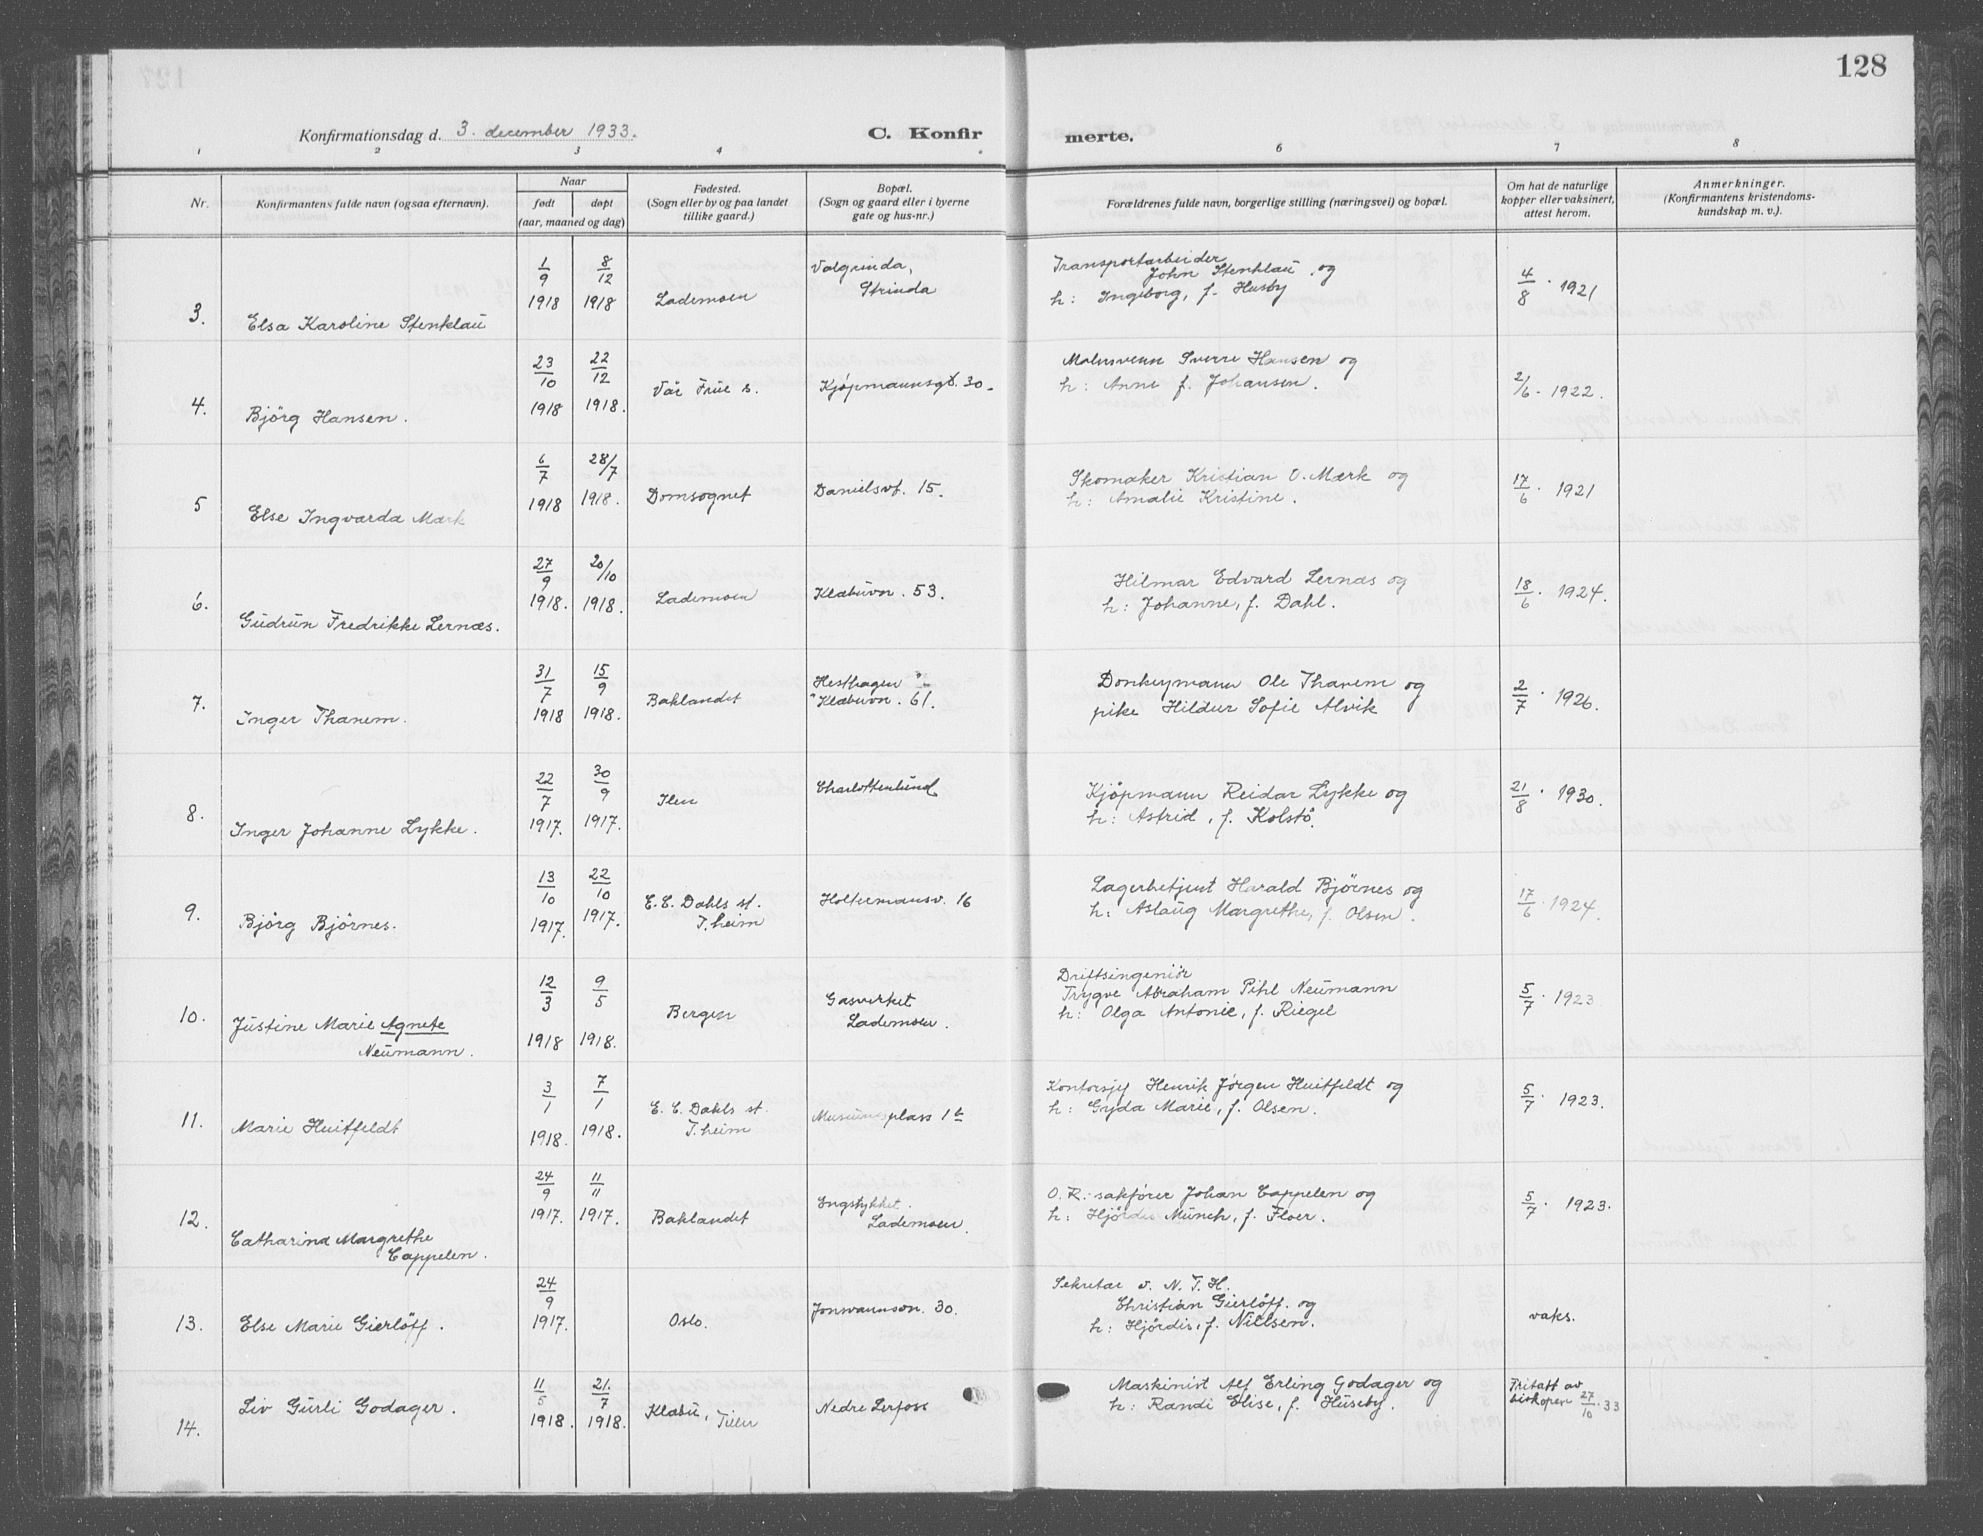 128
Konfirmationsdag d. 3. december 1933.
C. Konfir merte.
1 2 3 4 6 7 8
Nr.
Konfirmantens fulde navn (ogsaa efternavn).
Naar
født
døpt
(aar, maaned og dag)
Fødested.
(Sogn eller by og paa landet
tillike gaard.)
Bopæl.
(Sogn og gaard eller i byerne
gate og hus-nr.)
Forældrenes fulde navn, borgerlige stilling (næringsvei) og bopæl.
Om hat de naturlige
kopper eller vaksinert,
attest herom.
Anmerkninger.
(Konfirmantens kristendoms-
kundskap m. v.).
3.
Elsa Karoline Stenklau
1/9 1918
8/12 1918
Lademoen
Valgrinda,
Strinda
Transportarbeider
John Stenklau og
h: Ingeborg, f. Husby
4/8 · 1921
4.
Björg Hansen.
23/10 1918
22/12 1918.
Vår Frue s.
Kjøpmannsgt. 30.
Malersvenn Sverre Hansen og
h: Anne f. Johansen.
2/6 · 1922.
5
Else Ingvarda Mærk
6/7 1918
28/7 1918.
Domsognet
Danielsv. 15.
Skomaker Kristian O. Mærk og
h: Amalie Kristine.
17/6 · 1921
6.
Gudrun Fredrikke Lernæs.
27/9 1918.
20/10 1918.
Lademoen
Klæbuvn. 53.
Hilmar Edvard Lernæs og
h: Johanne, f. Dahl.
18/6 · 1924.
7.
Inger Thanem.
31/7 1918
15/9 1918.
Baklandet
Hesthagen
Klæbuvn. 61.
Donkeymann Ole Thanem og
pike Hildur Sofie Alvik
2/7 · 1926.
8.
Inger Johanne Lykke.
22/7 1917.
30/9 1917.
Ilen
Charlottenlund
Kjöpmann Reidar Lykke og
h: Astrid, f. Kolstö.
21/8 · 1930.
9.
Björg Björnes.
13/10 1917.
22/10 1917.
E. C. Dahls st.
T.heim
Holtermansv. 16
Lagerbetjent Harald Bjørnes og
h: Aslaug Margrethe, f. Olsen.
17/6 · 1924.
10.
Justine Marie Agnete
Neumann.
12/3 1918
9/5 1918.
Bergen
Gasverket
Lademoen.
Driftsingeniör
Trygve Abraham Pihl Neumann
h: Olga Antonie, f. Riegel
5/7 · 1923
11.
Marie Huitfeldt
3/1 1918.
7/1 1918.
E. C. Dahls st.
T.heim
Museumsplass 1 b
Kontorsjef Henrik Jørgen Huitfeldt og
h: Gyda Marie, f. Olsen.
5/7 · 1923.
12.
Catharina Margrethe
Cappelen.
24/9 1917.
11/11 1917.
Baklandet
Engstykket.
Lademoen.
O.R. sakfører Johan Cappelen og
h: Hjördis Münch, f. Floer.
5/7 · 1923.
13.
Else Marie Gierlöff.
24/9 1917.
Oslo.
Jonsvannsvn. 30.
Sekretær v. N. T. H.
Christian Gierlöff. og
h: Hjördis, f. Nielsen.
vaks.
14.
Liv Gurli Godager.
11/5 1918.
21/7 1918.
Klæbu, Tiller
Nedre Lerfoss
Maskinist Alf Erling Godager og
h: Randi Elise, f. Huseby.
Fritatt av
biskopen 27/10 · 33